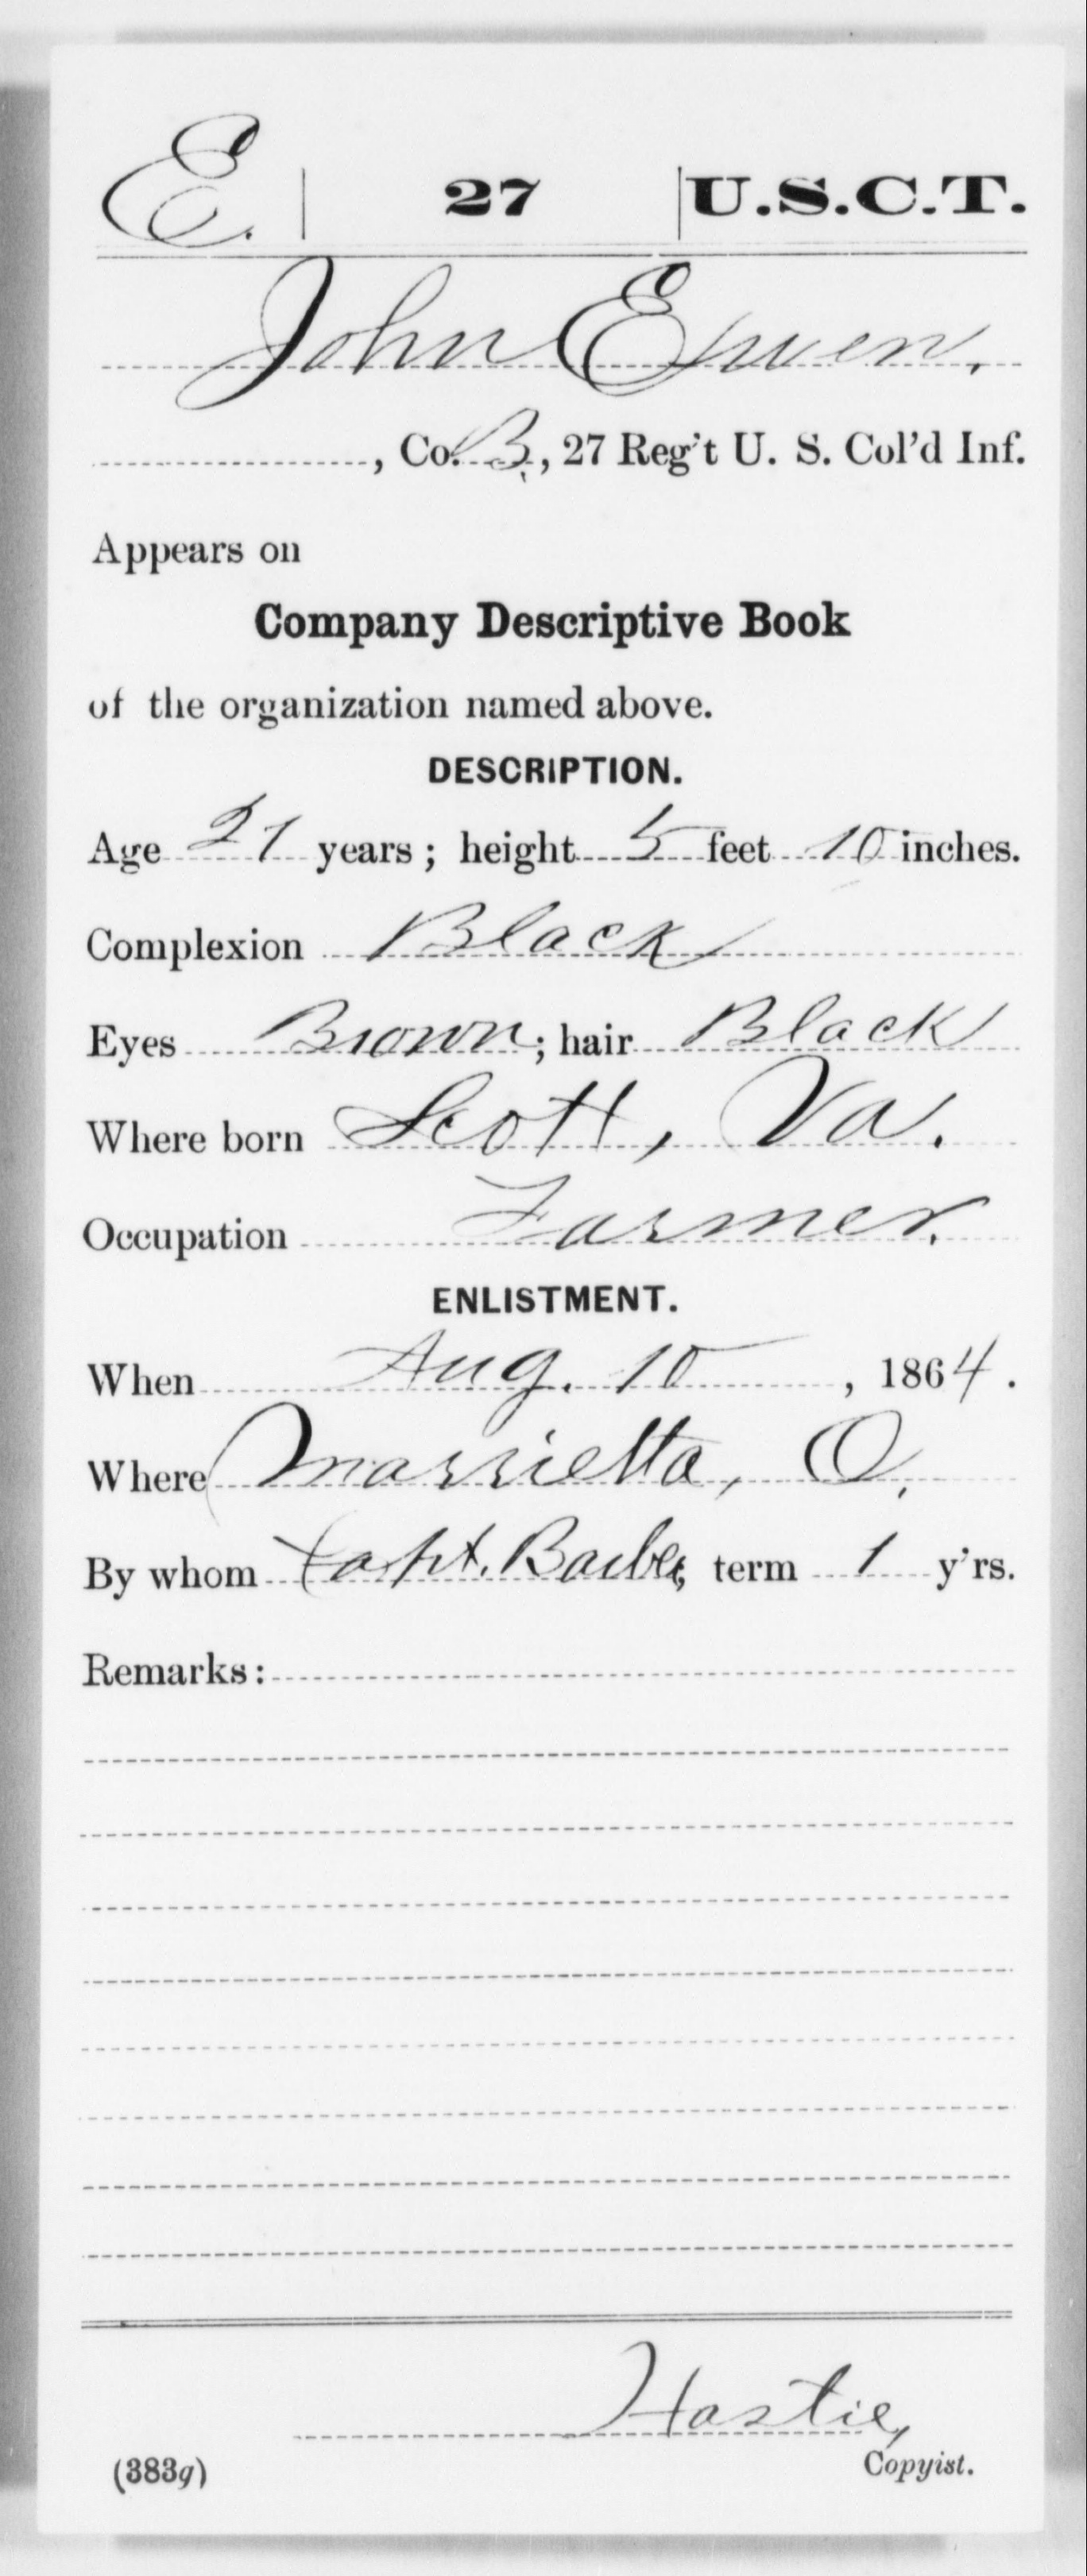 E. | 27 | U.S.C.T.
John Ewen.
, Co. B, 27 Reg't U. S. Col'd Inf.
Appears on
Company Descriptive Book
of the organization named above.
DESCRIPTION.
Age 21 years; height 5 feet 10 inches.
Complexion Black
Eyes Brown; hair Black
Where born Scott, Va.
Occupation Farmer.
ENLISTMENT.
When Aug. 10, 1864.
Where Marrietta, O.
By whom Capt. Barber, term 1 y'rs.
Remarks:
Hastie,
Copyist.
(383g)